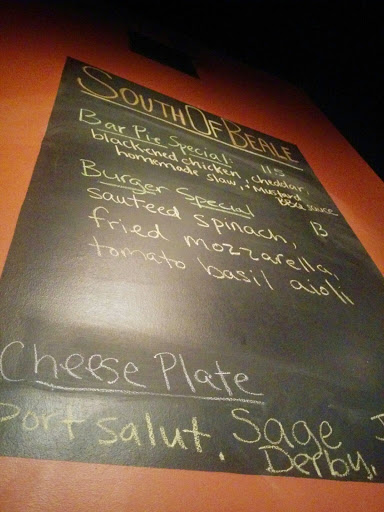 SOUTH OF BEALE
Bar Pie Special: 11.5
blackened chicken, cheddar,
homemade slaw, & mustard
BBQ sauce
Burger Special 13
sauteed spinach,
fried mozzarella,
tomato basil aioli
Cheese Plate
Port Salut, Sage
Derby,